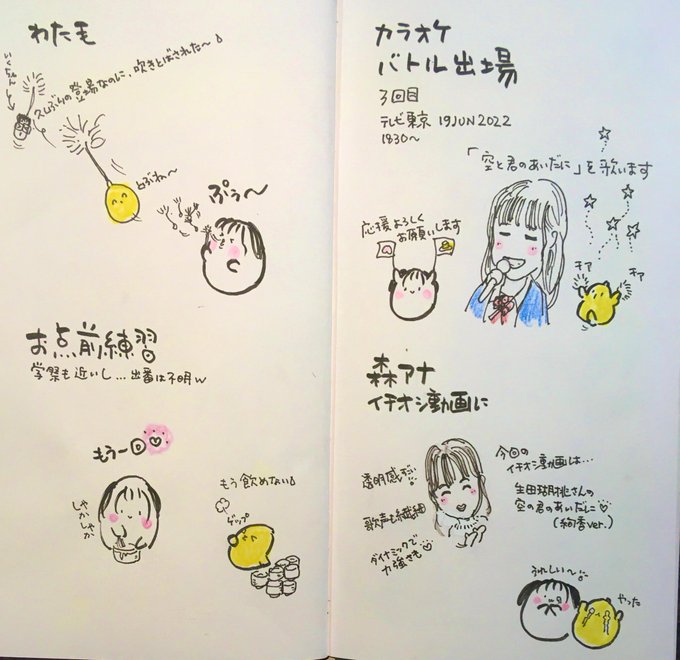 わた毛
いくちゃんと
久しぶりの登場なのに、吹きとばされた〜
とぶね〜
ぷぅ〜
お点前練習
学祭も近いし…出番は不明w
もう一回
しゃかしゃか
もう飲めない
ゲップ
カラオケ
バトル出場
3回目
テレビ東京 19JUN2022
1830〜
「空と君のあいだに」を歌います
応援よろしく
お願いします
オア
オア
森アナ
イチオシ動画に
透明感
歌声も繊細
ダイナミックで
力強さも
今回の
イチオシ動画は…
生田瑚桃さんの
空の君のあいだに
(絢香ver.)
うれしい〜
やった